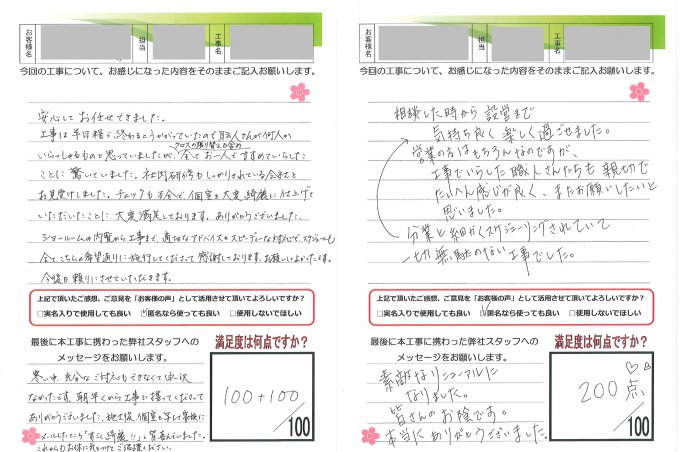 お客様名
担当
工事名
今回の工事について、お感じになった内容をそのままご記入お願いします。
安心してお任せできました。
工事は半日程で終わるとうかがっていたので職人さんが何人か
クロスの張り替えも含め
いらっしゃるものと思っていましたが、全てお一人ですすめていらした
ことに驚いていました。社内研修もしっかりされている会社と
お見受けしました。チェックも万全で個室を大変綺麗に仕上げて
いただいたことに大変満足しております。ありがとうございました。
ショールームの内覧から工事まで、適切なアドバイスとスピーディーな対応で、スケジュールも
全てこちらの希望通りに施行してくださって感謝しております。お願いしてよかったです。
今後も頼りにさせていただきます。
上記で頂いたご感想、ご意見を「お客様の声」として活用させて頂いてよろしいですか？
□実名入りで使用しても良い ☑匿名なら使っても良い □使用しないでほしい
最後に本工事に携わった弊社スタッフへの
メッセージをお願いします。
寒い中、充分なご対応もできなくて申し訳
なかったです。朝早くから工事に携ってくださって
ありがとうございました。施工後、個室を写して家族に
メールしたところ「すごく綺麗!!」と皆喜んでいました。
これからもお体に気をつけてご活躍ください。
満足度は何点ですか？
100+100
/100
お客様名
担当
工事名
今回の工事について、お感じになった内容をそのままご記入お願いします。
相談した時から設営まで
気持ち良く楽しく過ごせました。
営業の方はもちろんなのですが、
工事でいらした職人さんたちも親切で
たいへん感じが良く、またお願いしたいと
思いました。
分業と細かくスケジューリングされていて
一切無駄のない工事でした。
上記で頂いたご感想、ご意見を「お客様の声」として活用させて頂いてよろしいですか？
□実名入りで使用しても良い ☑匿名なら使っても良い □使用しないでほしい
最後に本工事に携わった弊社スタッフへの
メッセージをお願いします。
素敵なリニューアルに
なりました。
皆さんのお陰です。
本当にありがとうございました。
満足度は何点ですか？
200点
/100